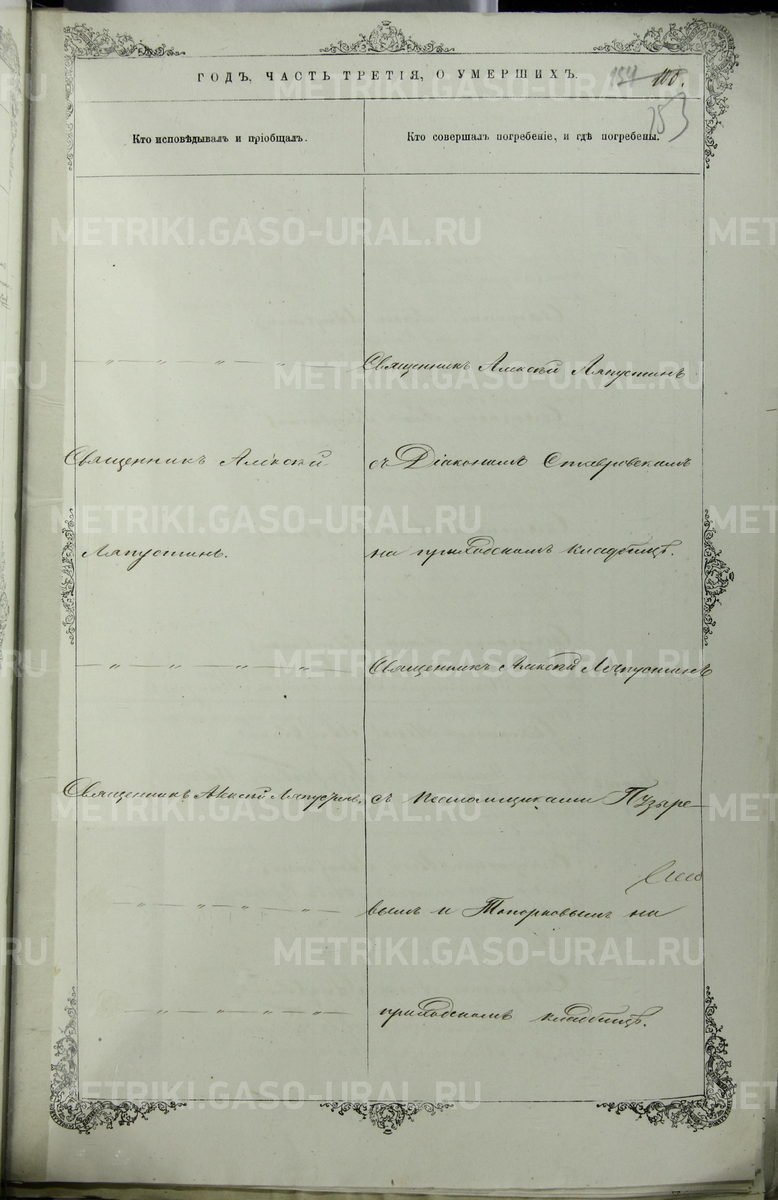 ГОДЪ, ЧАСТЬ ТРЕТІЯ, О УМЕРШИХЪ.
110.
153
Кто исповѣдывалъ и пріобщалъ.
Кто совершалъ погребеніе, и гдѣ погребены.
METRIKI.GASO-URAL.RU
— „ — „ — „ — „ —
Священникъ Алексій Ляпустинъ
Священникъ Алексій
съ Діакономъ Ставровскимъ
Ляпустинъ.
на приходскомъ кладбищѣ.
— „ — „ — „ — „ —
Священникъ Алексій Ляпустинъ
Священникъ Алексій Ляпустинъ.
съ псаломщиками Пузыре-
— „ — „ — „ — „ —
вымъ и Топорковымъ на
— „ — „ — „ — „ —
приходскомъ кладбищѣ.